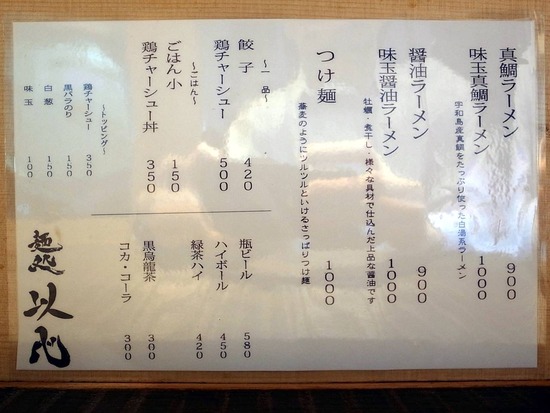 真鯛ラーメン 900
味玉真鯛ラーメン 1000
宇和島産真鯛をたっぷり使った白湯系ラーメン
醤油ラーメン 900
味玉醤油ラーメン 1000
牡蠣・煮干し・様々な具材で仕込んだ上品な醤油です
つけ麺 1000
蕎麦のようにツルツルといけるさっぱりつけ麺
〜一品〜
餃子 420
鶏チャーシュー 500
〜ごはん〜
ごはん小 150
鶏チャーシュー丼 350
〜トッピング〜
鶏チャーシュー 350
黒バラのり 150
白葱 150
味玉 100
瓶ビール 580
ハイボール 450
緑茶ハイ 420
黒烏龍茶 300
コカ・コーラ 300
麺処 以心